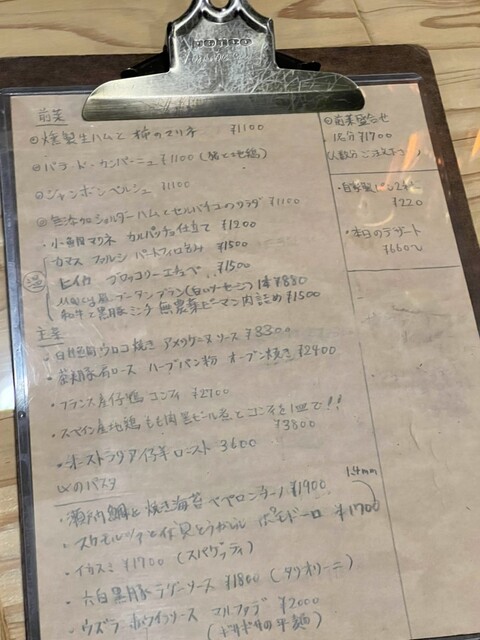 前菜
燻製生ハムと柿のマリネ ¥1100
パテ・ド・カンパーニュ ¥1100
ジャンボンペルシェ ¥1100
無添加ショルダーハムとセルバチコのサラダ ¥1100
・小魚 マリネ カルパッチョ仕立て ¥1200
温
カマス ファルシ パートフィロ包み ¥1500
ヒイカ ブロッコリー ¥1500
ブーダンブラン(白いソーセージ) 1本 ¥880
和牛と黒豚ミンチ 無農薬ピーマン肉詰め ¥1500
主菜
・ウロコ焼き アメリケーヌソース
・茶美豚肩ロース ハーブパン粉 オーブン焼き ¥2400
・フランス産仔鶏 コンフィ ¥2700
・スペイン産地鶏 もも肉 黒ビール煮とコンフィを1皿で!!
¥3800
・オーストラリア仔羊ロースト 3600
〆のパスタ
・瀬戸内鯛と焼き海苔 ペペロンチーノ ¥1900
1.4mm
・スカモルツァと 唐がらし ポモドーロ ¥1700
・イカスミ ¥1700 (スパゲッティ)
・六白黒豚ラグーソース ¥1800 (タリオリーニ)
・ウズラ・ホワイトソース マルファデ ¥2000
(ギザギザの平麺)
前菜盛合せ
1名分 ¥1700
(人数分ご注文下さい)
・自家製
¥220
・本日のデザート
¥660〜